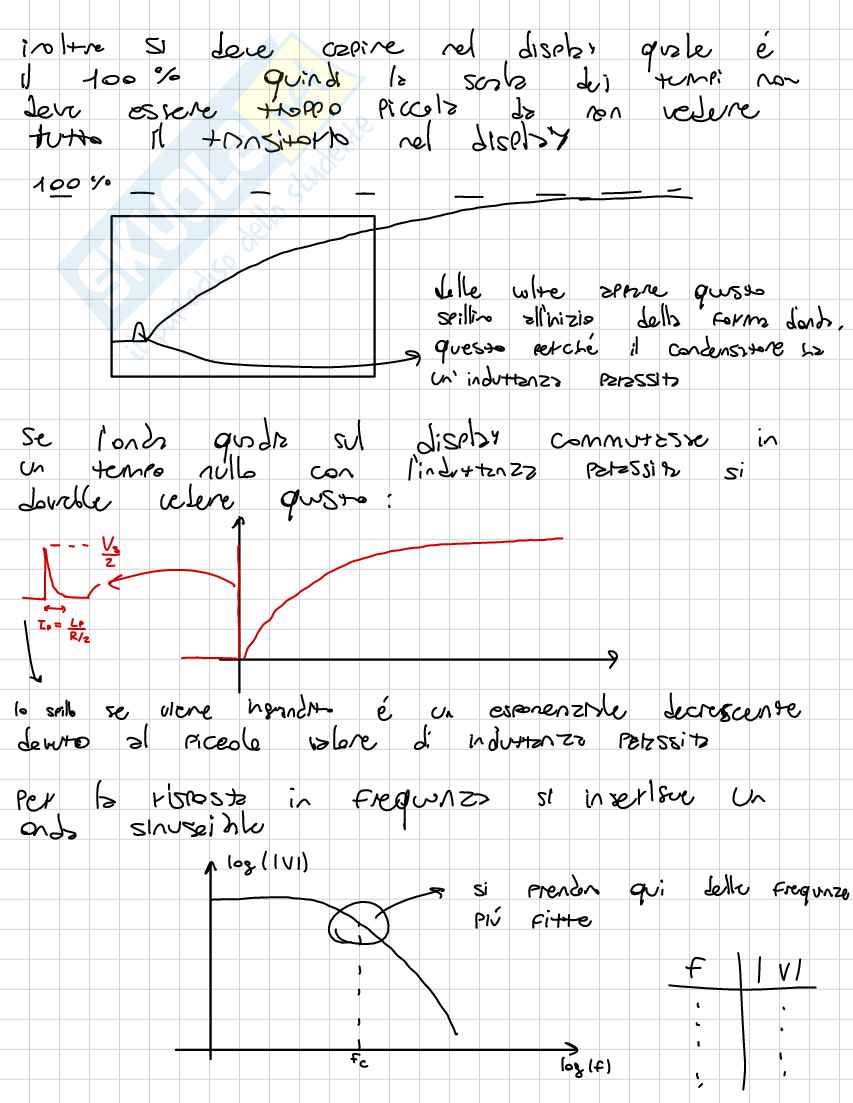 inoltre si deve capire nel display quale é
il 100 % quindi la scala dei tempi non
deve essere troppo piccola da non vedere
tutto il transitorio nel display
100 %
delle volte appare questo
spillino all'inizio della forma d'onda,
questo perché il condensatore ha
un'induttanza parassita
Se l'onda quadra sul display commutasse in
un tempo nullo con l'induttanza parassita si
dovrebbe vedere questo :
Vs/2
τp = Lp/R/2
lo spillo se viene ingrandito é un esponenziale decrescente
dovuto al piccolo valore di induttanza parassita
Per la risposta in frequenza si inserisce un
onda sinusoidale
log(|V|)
si prendon qui delle frequenze
più fitte
f |V|
fc
log(f)
SKUOLA
il paradiso dello studente